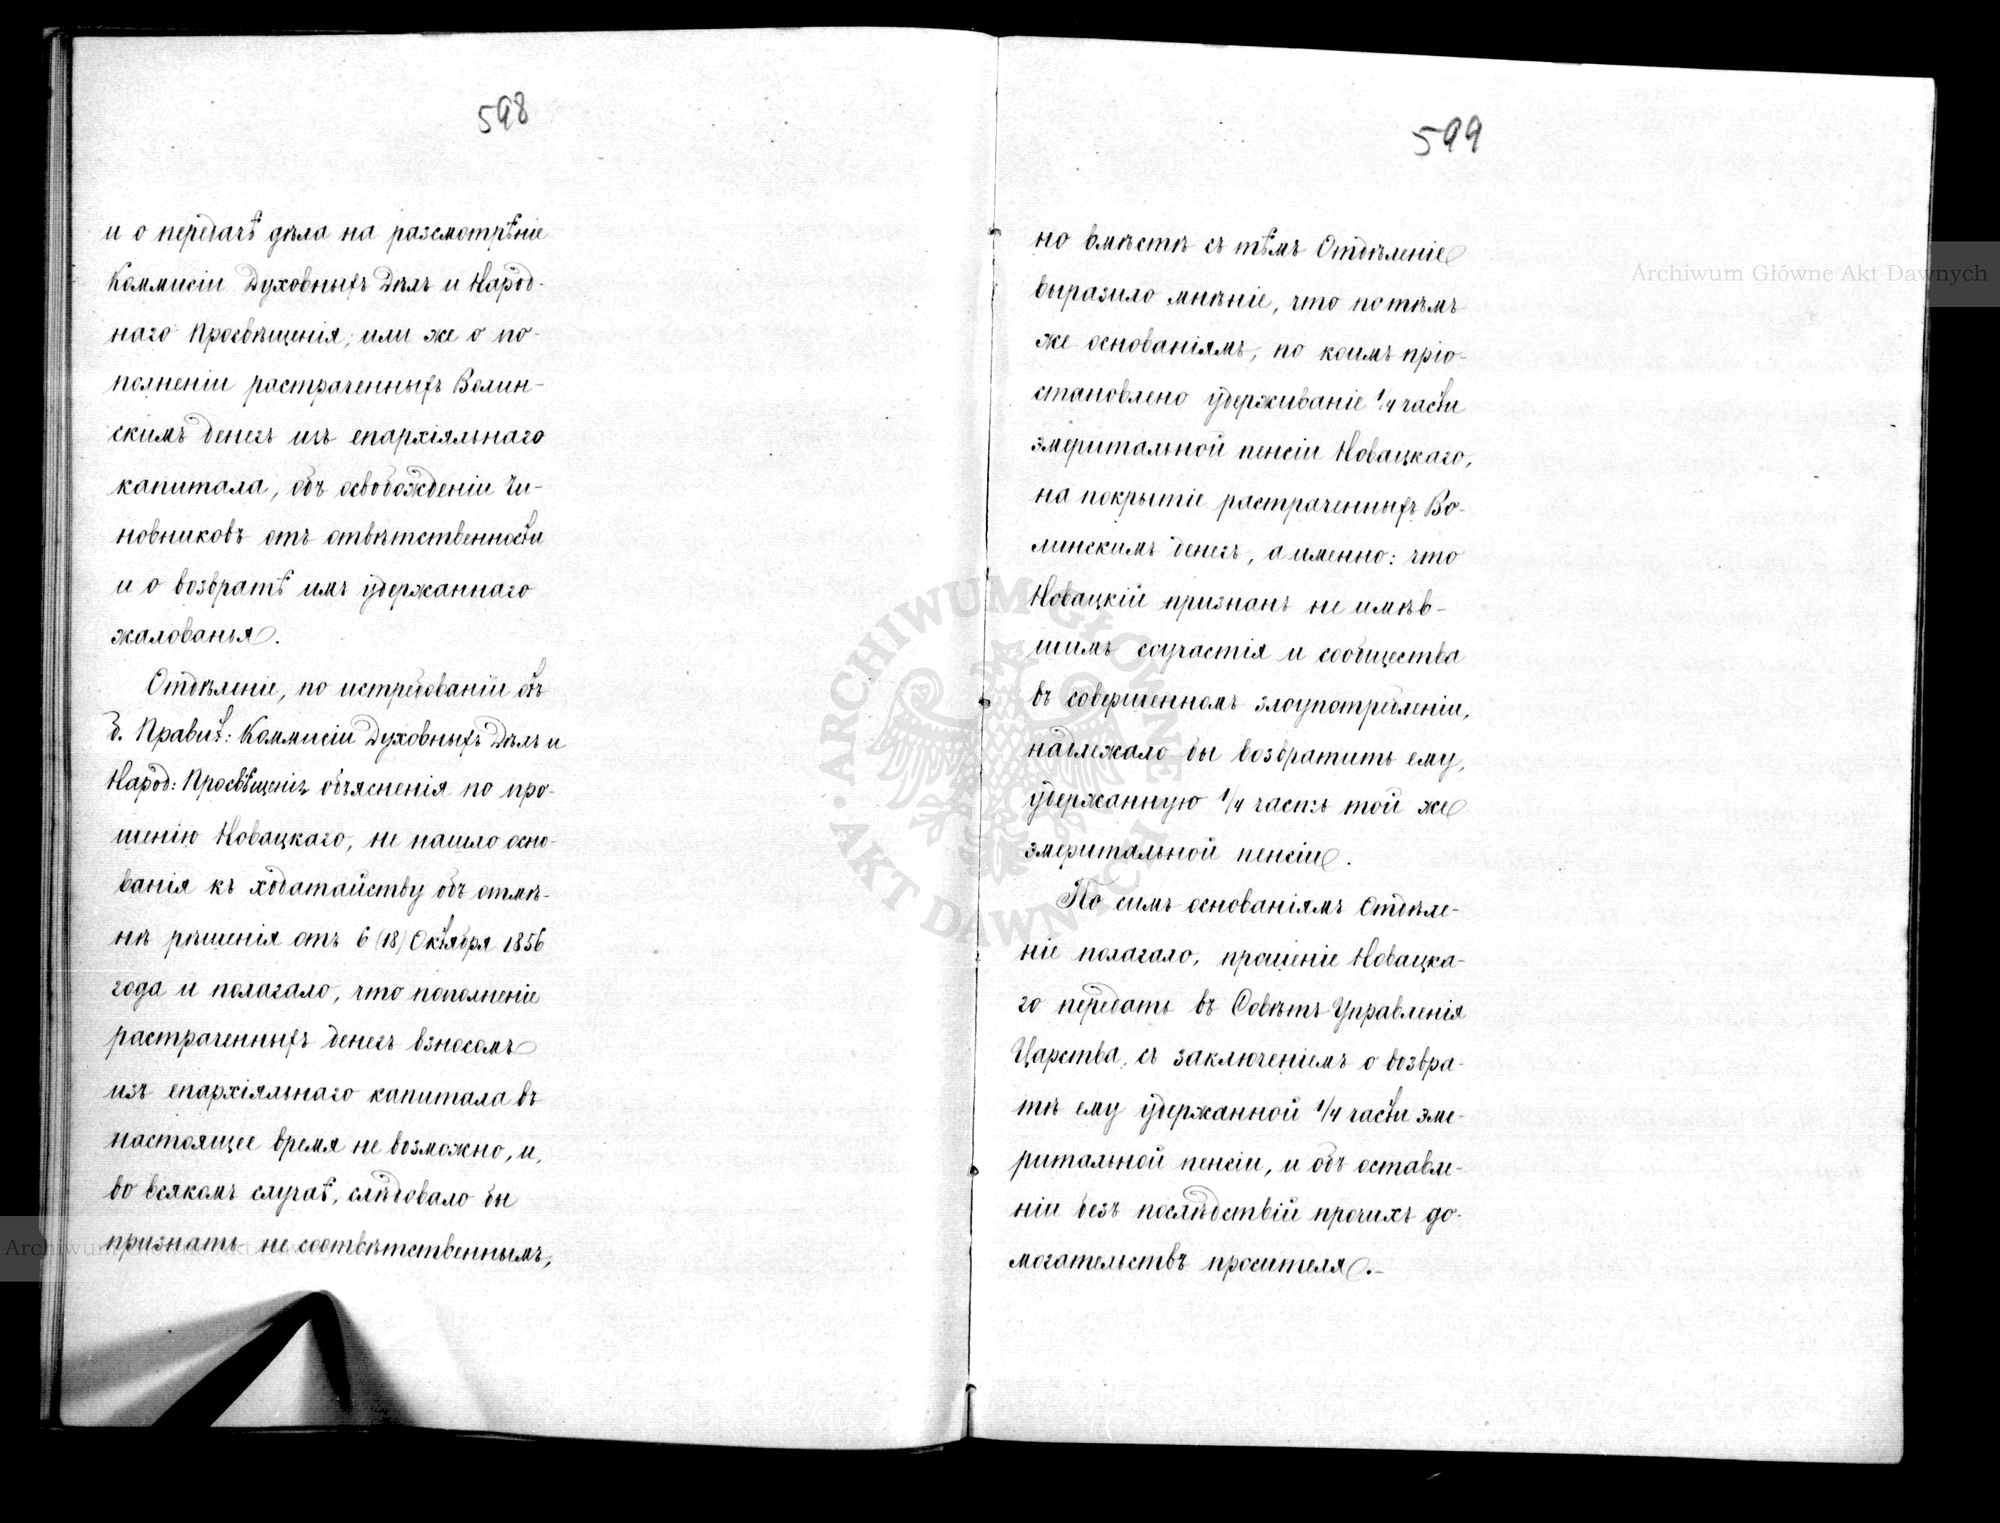 598
и о передачѣ дѣла на разсмотрѣніе
Коммисіи Духовныхъ Дѣлъ и Народ-
наго Просвѣщенія, или же о по-
полненіи растраченныхъ Волин-
скимъ денегъ изъ епархіяльнаго
капитала, объ освобожденіи чи-
новниковъ отъ отвѣтственности
и о возвратѣ имъ удержаннаго
жалованья.
Отдѣленіе, по истребованіи отъ
б. Правит: Коммисіи Духовныхъ Дѣлъ и
Народ: Просвѣщенія объясненія по про-
шенію Новацкаго, не нашло осно-
ванія къ ходатайству объ отмѣ-
нѣ рѣшенія отъ 6 (18) Октября 1856
года и полагало, что пополненіе
растраченныхъ денегъ взносомъ
изъ епархіяльнаго капитала въ
настоящее время не возможно, и,
во всякомъ случаѣ, слѣдовало бы
признать не соотвѣтственнымъ,
599
но вмѣстѣ съ тѣмъ Отдѣленіе
выразило мнѣніе, что по тѣмъ
же основаніямъ, по коимъ пріо-
становлено удерживаніе 1/4 части
эмеритальной пенсіи Новацкаго,
на покрытіе растраченныхъ Во-
линскимъ денегъ, а именно: что
Новацкій признанъ не имѣв-
шимъ соучастія и сообщества
въ совершенномъ злоупотребленіи,
надлежало бы возвратить ему,
удержанную 1/4 часть той же
эмеритальной пенсіи.
По симъ основаніямъ Отдѣле-
ніе полагало, прошеніе Новацка-
го передать въ Совѣтъ Управленія
Царства, съ заключеніемъ о возвра-
тѣ ему удержанной 1/4 части эме-
ритальной пенсіи, и объ оставле-
ніи безъ послѣдствій прочихъ до-
могательствъ просителя.
Archiwum Główne Akt Dawnych
ARCHIWUM GŁÓWNE AKT DAWNYCH